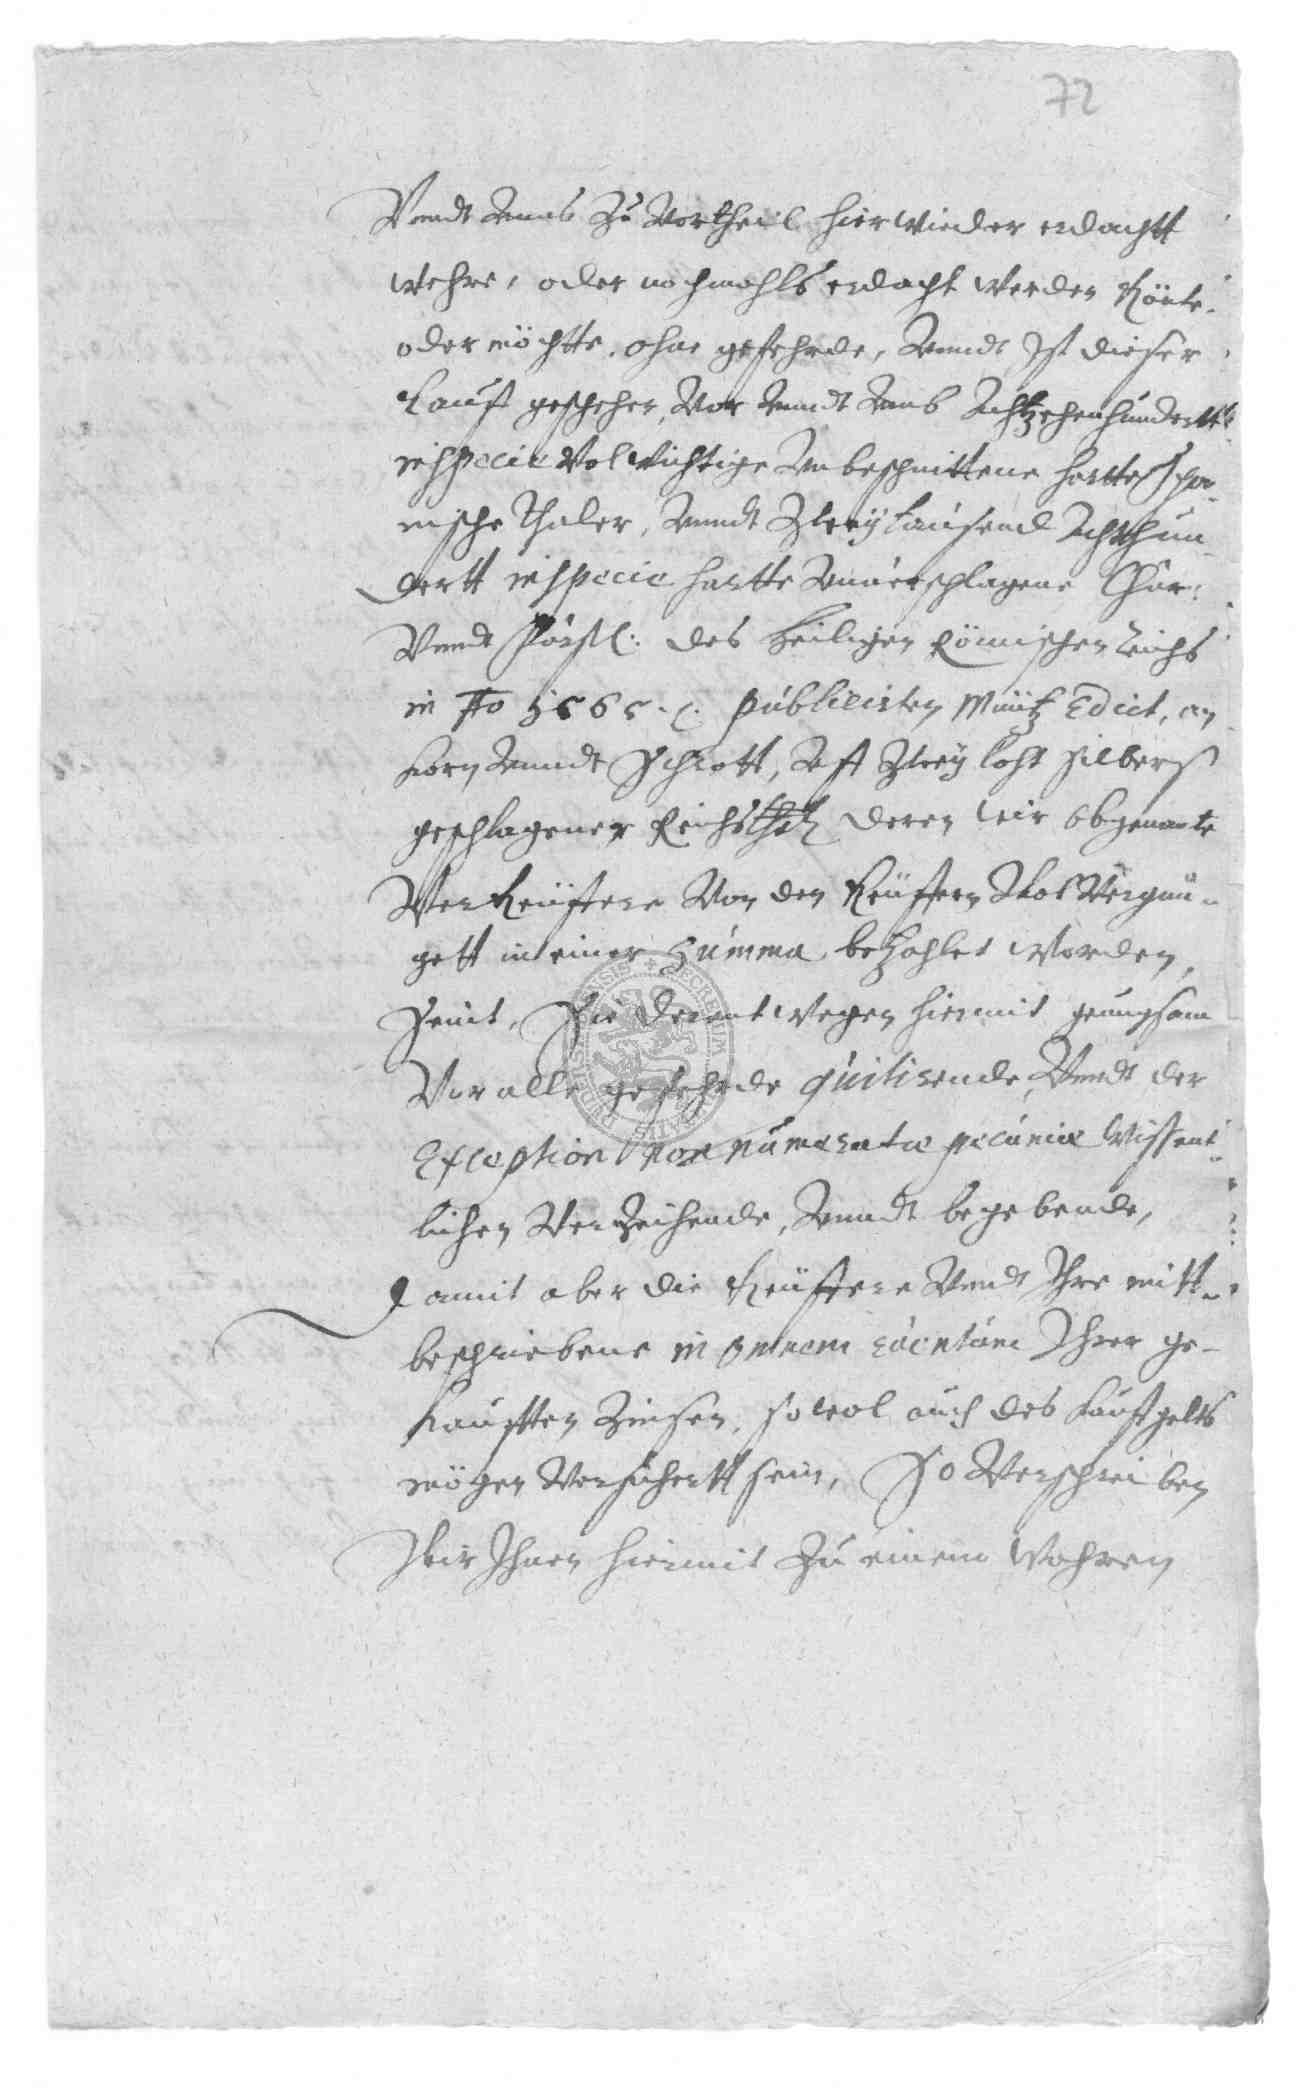 72
Vnndt Vnns Zu Vortheil hierwieder erdachtt
wehre, oder nochmahls erdacht werden Könte,
oder möchtte, ohne gefehrde, Vnndt Ist dieser
Kauff geschehen, Vor Vnndt Vmb Achtzehenhundertt
inspecie Volwichtige Vnbeschnittene hartte Spa-
nische Thaler, Vnndt Zweÿ tausend Achthun-
dertt inspecie hartte Vnuerschlagene Chur:
Vnndt Fürstl: des heiligen Römischen Reichs
in Ao 1565. publicirten Müntz Edict, an
Korn Vnndt Schrott, Vff Zweÿ loht Silbers
geschlagener Reichsthlr deren wir obgenante
Verkeüffere Von den Keüffern Wol Vergnü-
gett in einer Summa bezahlet worden
Seint, Sie derentwegen hiermit genugsam
Vor alle gefehrde quitirende, Vnndt der
Exception non numeratæ pecuniæ Wissent-
lichen Verzeihende, Vnndt begebende,
Damit aber die Keüffere Vnndt Ihre mitt-
beschriebene in omnem euentum Ihrer ge-
Kaufften Zinsen, so wol auch des Kauffgelts
mögen Versichertt sein, So Verschreiben
Wir Ihnen hiermit Zu einem Wahren